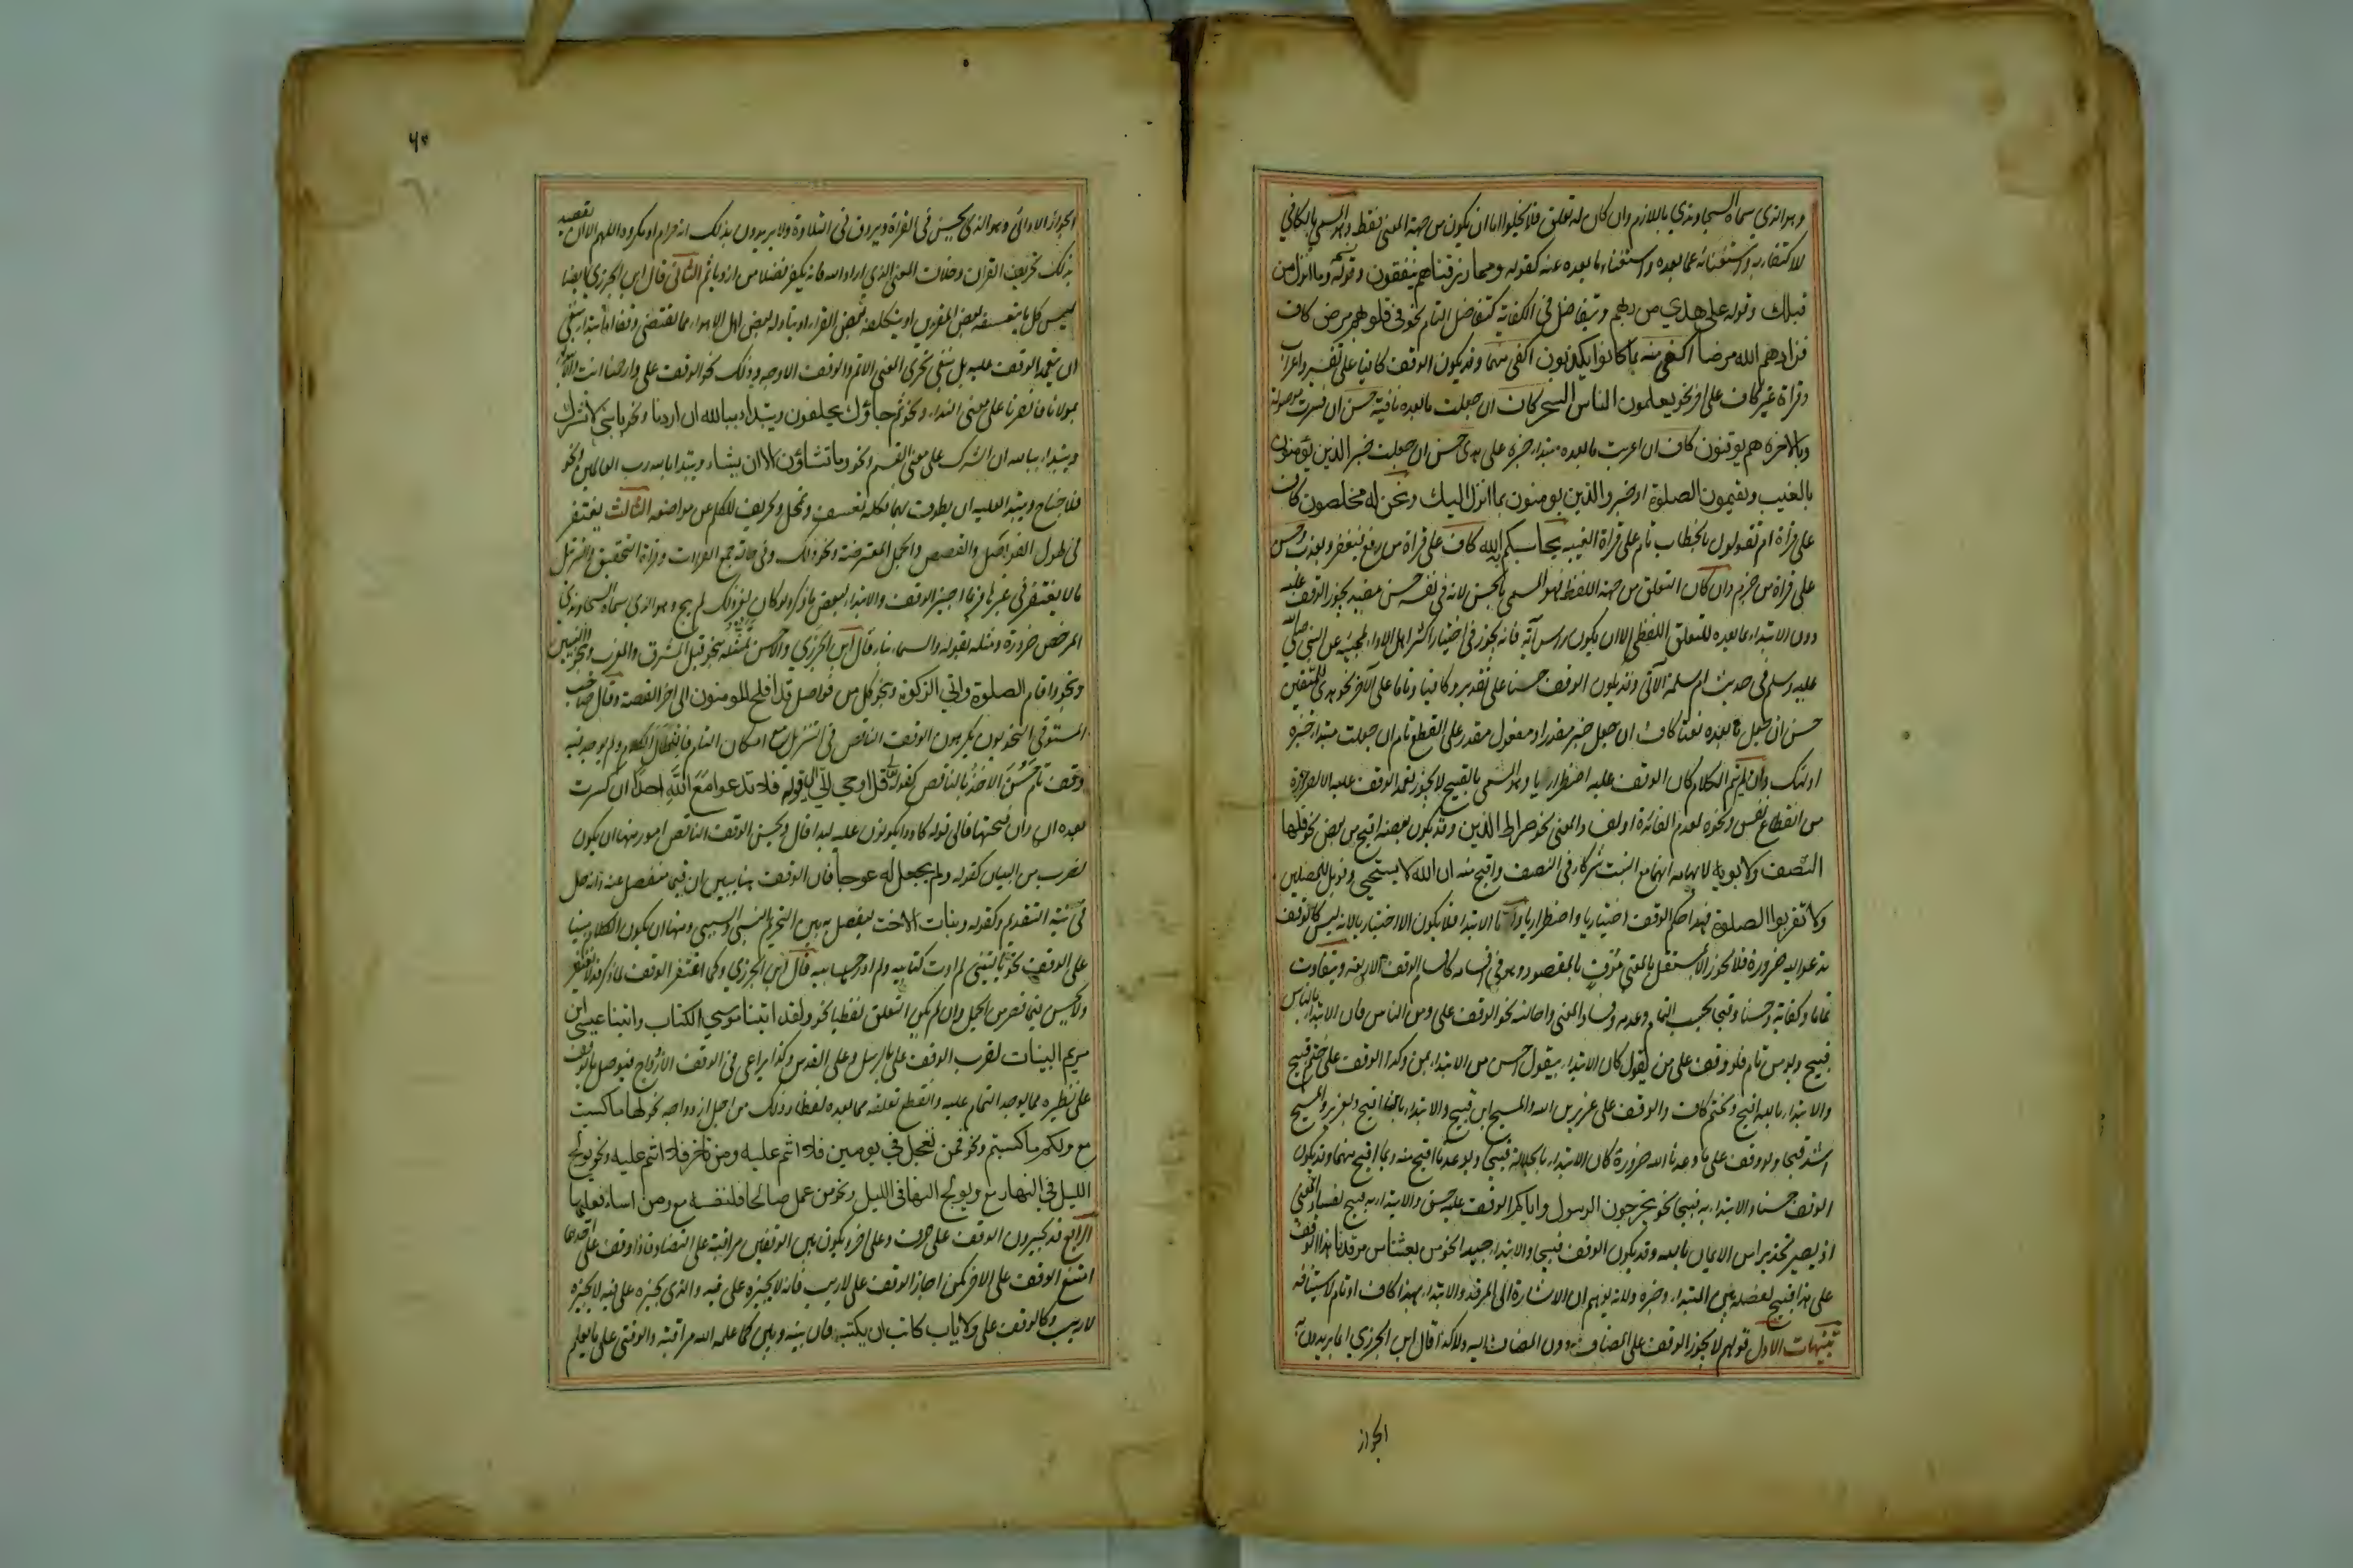 وهو الذي سماه السجاوندي باللازم وان كان له تعلق فلا يخلوا اما ان يكون من جهة المعنى فقط وهو المسمى بالكافي
للاكتفاء به واستغنائه عما بعده واستغناء ما بعده عنه كقوله ومما رزقناهم ينفقون وقوله وما انزل من
قبلك وقوله على هدي من ربهم ويتفاضل في الكفاية كتفاضل التام نحو في قلوبهم مرض كاف
فزادهم الله مرضا اكفى منه بما كانوا يكذبون اكفى منهما وقد يكون الوقف كافيا على تفسير واعراب
وقراة غير كاف على اخر نحو يعلمون الناس السحر كاف ان جعلت ما بعده نافية حسن ان فسرت موصولة
وبالاخرة هم يوقنون كاف ان اعرب ما بعده مبتدا خبره على هدى حسن ان جعلت خبر الذين يؤمنون
بالغيب ويقيمون الصلوة او خبر والذين يومنون بما انزل اليك ونحن له مخلصون كاف
على قراة ام تقولون بالخطاب تام على قراة الغيبة يحاسبكم به الله كاف على قراة من رفع فيغفر ويعذب وحسن
على قراة من جزم وان كان التعلق من جهة اللفظ فهو المسمى بالحسن لانه في نفسه حسن مفيد يجوز الوقف عليه
دون الابتداء بما بعده للتعلق اللفظي الا ان يكون راس آية فانه يجوز في اختيار اكثر اهل الاداء لمجيئه عن النبي صلى الله
عليه وسلم في حديث ام سلمة الآتي وقد يكون الوقف حسنا على تقدير وكافيا وتاما على آخر نحو هدى للمتقين
حسن ان جعل ما بعده نعتا كاف ان جعل خبر مقدر او مفعول مقدر على القطع تام ان جعلت مبتدا خبره
اولئك وان لم يتم الكلام كان الوقف عليه اضطراريا وهو المسمى بالقبيح لا يجوز تعمد الوقف عليه الا لضرورة
من انقطاع نفس ونحوه لعدم الفائدة او لفساد المعنى نحو صراط الذين وقد يكون بعضه اقبح من بعض نحو فلها
النصف ولابويه لايهامه انهما مع البنت شركاء في النصف واقبح منه ان الله لا يستحيي وفويل للمصلين
ولا تقربوا الصلوة فهذا حكم الوقف اختياريا واضطراريا واما الابتدا فلا يكون الا اختياريا لانه ليس كالوقف
تدعو اليه ضرورة فلا يجوز الا بمستقل بالمعنى موف بالمقصود وهو في اقسامه كاقسام الوقف الاربعة ويتفاوت
تماما وكفاية وحسنا وقبحا بحسب التمام وعدمه وفساد المعنى واحالته نحو الوقف على ومن الناس فان الابتداء بالناس
قبيح وبومن تام فلو وقف على من يقول كان الابتداء بيقول احسن من الابتداء بمن وكذا الوقف على ختم قبيح
والابتداء بالله اقبح وبختم كاف والوقف على عزير بن الله والمسيح ابن قبيح والابتداء بابن اقبح وبعزير والمسيح
اشد قبحا ولو وقف على ما وعدنا الله ضرورة كان الابتداء بالجلالة قبيحا وبوعدنا اقبح منه وبما اقبح منهما وقد يكون
الوقف حسنا والابتداء به قبيحا نحو يخرجون الرسول واياكم الوقف عليه حسن والابتداء به قبيح لفساد المعنى
اذ يصير تحذيرا من الايمان بالله وقد يكون الوقف قبيحا والابتداء جيدا نحو من بعثنا من مرقدنا هذا الوقف
على هذا قبيح لفصله بين المبتداء وخبره ولانه يوهم ان الاشارة الى المرقد والابتداء بهذا كاف او تام لاستينافه
تنبيهات الاول قولهم لا يجوز الوقف على المضاف دون المضاف اليه ولا كذا قال ابن الجزري انما يريدون به
الجواز
٦٠
الجواز الادائى وهو الذي يحسن في القراة ويروق في التلاوة ولا يريدون بذلك انه حرام او مكروه اللهم الا ان يقصد
بذلك تحريف القران وخلاف المعنى الذي اراد الله فانه يكفر فضلا من ان ياثم الثاني قال ابن الجزري ايضا
ليس كل ما يتعسفه بعض المعربين او يتكلفه بعض القراء او يتاوله بعض اهل الاهواء مما يقتضي وقفا او ابتداء ينبغي
ان يتعمد الوقف عليه بل ينبغي تحري المعنى الاتم والوقف الاوجه وذلك نحو الوقف على وارحمنا انت والابتداء
مولانا فانصرنا على معنى النداء ونحو ثم جاؤك يحلفون ويبتداء بالله ان اردنا ونحو يا بني لا تشرك
ويبتداء بالله ان الشرك على معنى القسم ونحو وما تشاؤن الا ان يشاء ويبتدا بالله رب العالمين ونحو
فلا جناح ويبتدا عليه ان يطوف بهما فكله تعسف وتمحل وتحريف للكلم عن مواضعه الثالث يغتفر
في طول الفواصل والقصص والجمل المعترضة ونحو ذلك وفي حالة جمع القراات وقراة التحقيق والتنزيل
ما لا يغتفر في غيرها فربما اجيز الوقف والابتداء لبعض ما ذكر ولو كان لغير ذلك لم يبح وهو الذي سماه السجاوندي
المرخص ضرورة ومثله بقوله والسماء بناء قال ابن الجزري والاحسن تمثيله بنحو قبل المشرق والمغرب وبنحو والنبيين
وبنحو واقام الصلوة واتي الزكوة وبنحو كل من فواصل قد افلح المومنون الى اخر القصة وقال صاحب
المستوفى النحويون يكرهون الوقف الناقص في التنزيل مع امكان التام فان طال الكلام ولم يوجد فيه
وقف تام حسن الاخذ بالناقص كقوله قل اوحي الي الى قوله فلا تدعوا مع الله احدا ان كسرت
بعده ان وان فتحتها فالى قوله كادوا يكونون عليه لبدا قال ويحسن الوقف الناقص امور منها ان يكون
لضرب من البيان كقوله ولم يجعل له عوجا فان الوقف هنا يبين ان قيما منفصل عنه وانه حال
في نية التقديم وكقوله وبنات الاخت ليفصل به بين التحريم النسبي والسببي ومنها ان يكون الكلام مبنيا
على الوقف نحو يا ليتني لم اوت كتابيه ولم ادر حسابيه قال ابن الجزري وكما اغتفر الوقف لما ذكر قد لا يغتفر
ولا يحسن فيما قصر من الجمل وان لم يكن التعلق لفظيا نحو ولقد اتينا موسي الكتاب واتينا عيسى ابن
مريم البينات لقرب الوقف على بالرسل وعلى القدس وكذا يراعى في الوقف الازدواج فيوصل ما يوقف
على نظيره مما يوجد التمام عليه وانقطع تعلقه مما بعده لفظا وذلك من اجل ازدواجه نحو لها ما كسبت
مع ولكم ما كسبتم ونحو فمن تعجل في يومين فلا اثم عليه ومن تاخر فلا اثم عليه ونحو يولج
الليل في النهار مع ويولج النهار في الليل ونحو من عمل صالحا فلنفسه مع ومن اساء فعليها
الرابع قد يجيزون الوقف على حرف وعلى اخر ويكون بين الوقفين مراقبة على التضاد فاذا وقف على احدهما
امتنع الوقف على الاخر كمن اجاز الوقف على لا ريب فانه لا يجيزه على فيه والذي يجيزه على فيه لا يجيزه
لا ريب وكالوقف على ولا ياب كاتب ان يكتب فان بينه وبين كما علمه الله مراقبة والوقف على ما يعلم